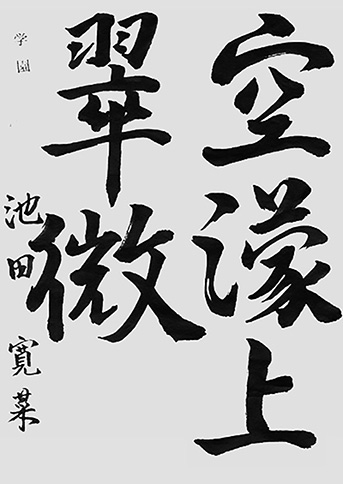 空濛上
翠微
学園
池田寛菜